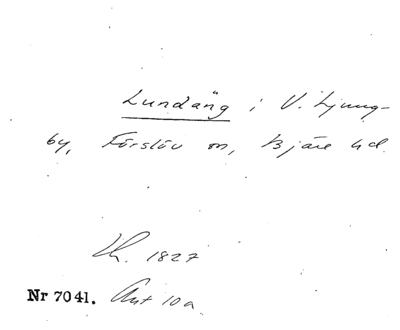 Lundäng i V. Ljung-
by, Förslöv sn, Bjäre hd.
Lh. 1827
Nr 7041. Akt 10a